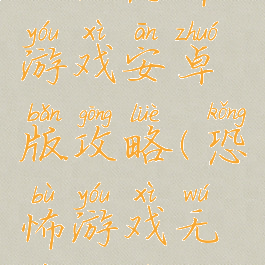 yóu xì ān zhuó
游戏安卓
bǎn gōng lüè kǒng
版攻略(恐
bù yóu xì wú
怖游戏无